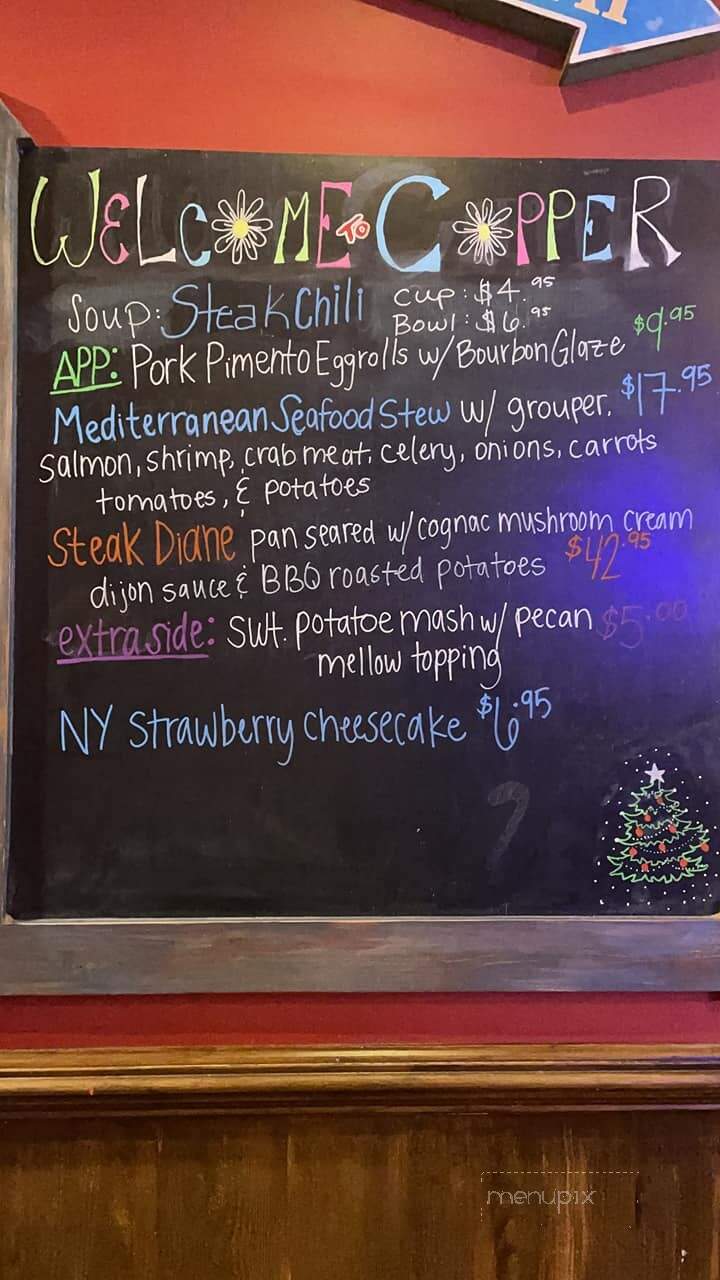 WELCOME TO COPPER
Soup: Steak Chili Cup: $4.95
Bowl: $6.95
APP: Pork Pimento Eggrolls w/ Bourbon Glaze $9.95
Mediterranean Seafood Stew w/ grouper, $17.95
salmon, shrimp, crab meat, celery, onions, carrots
tomatoes, & potatoes
Steak Diane pan seared w/ cognac mushroom cream
dijon sauce & BBQ roasted potatoes $42.95
extra side: swt. potatoe mash w/ pecan $5.00
mellow topping
NY strawberry cheesecake $6.95
menupix